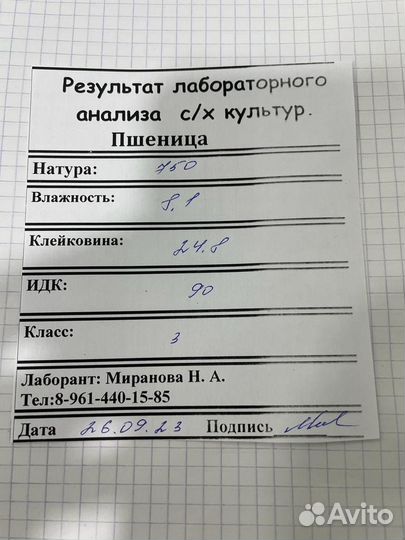 Результат лабораторного
анализа с/х культур.
Пшеница
Натура: 750
Влажность: 8,1
Клейковина: 24.8
ИДК: 90
Класс: 3
Лаборант: Миранова Н. А.
Тел:8-961-440-15-85
Дата 26.09.23 Подпись
Avito